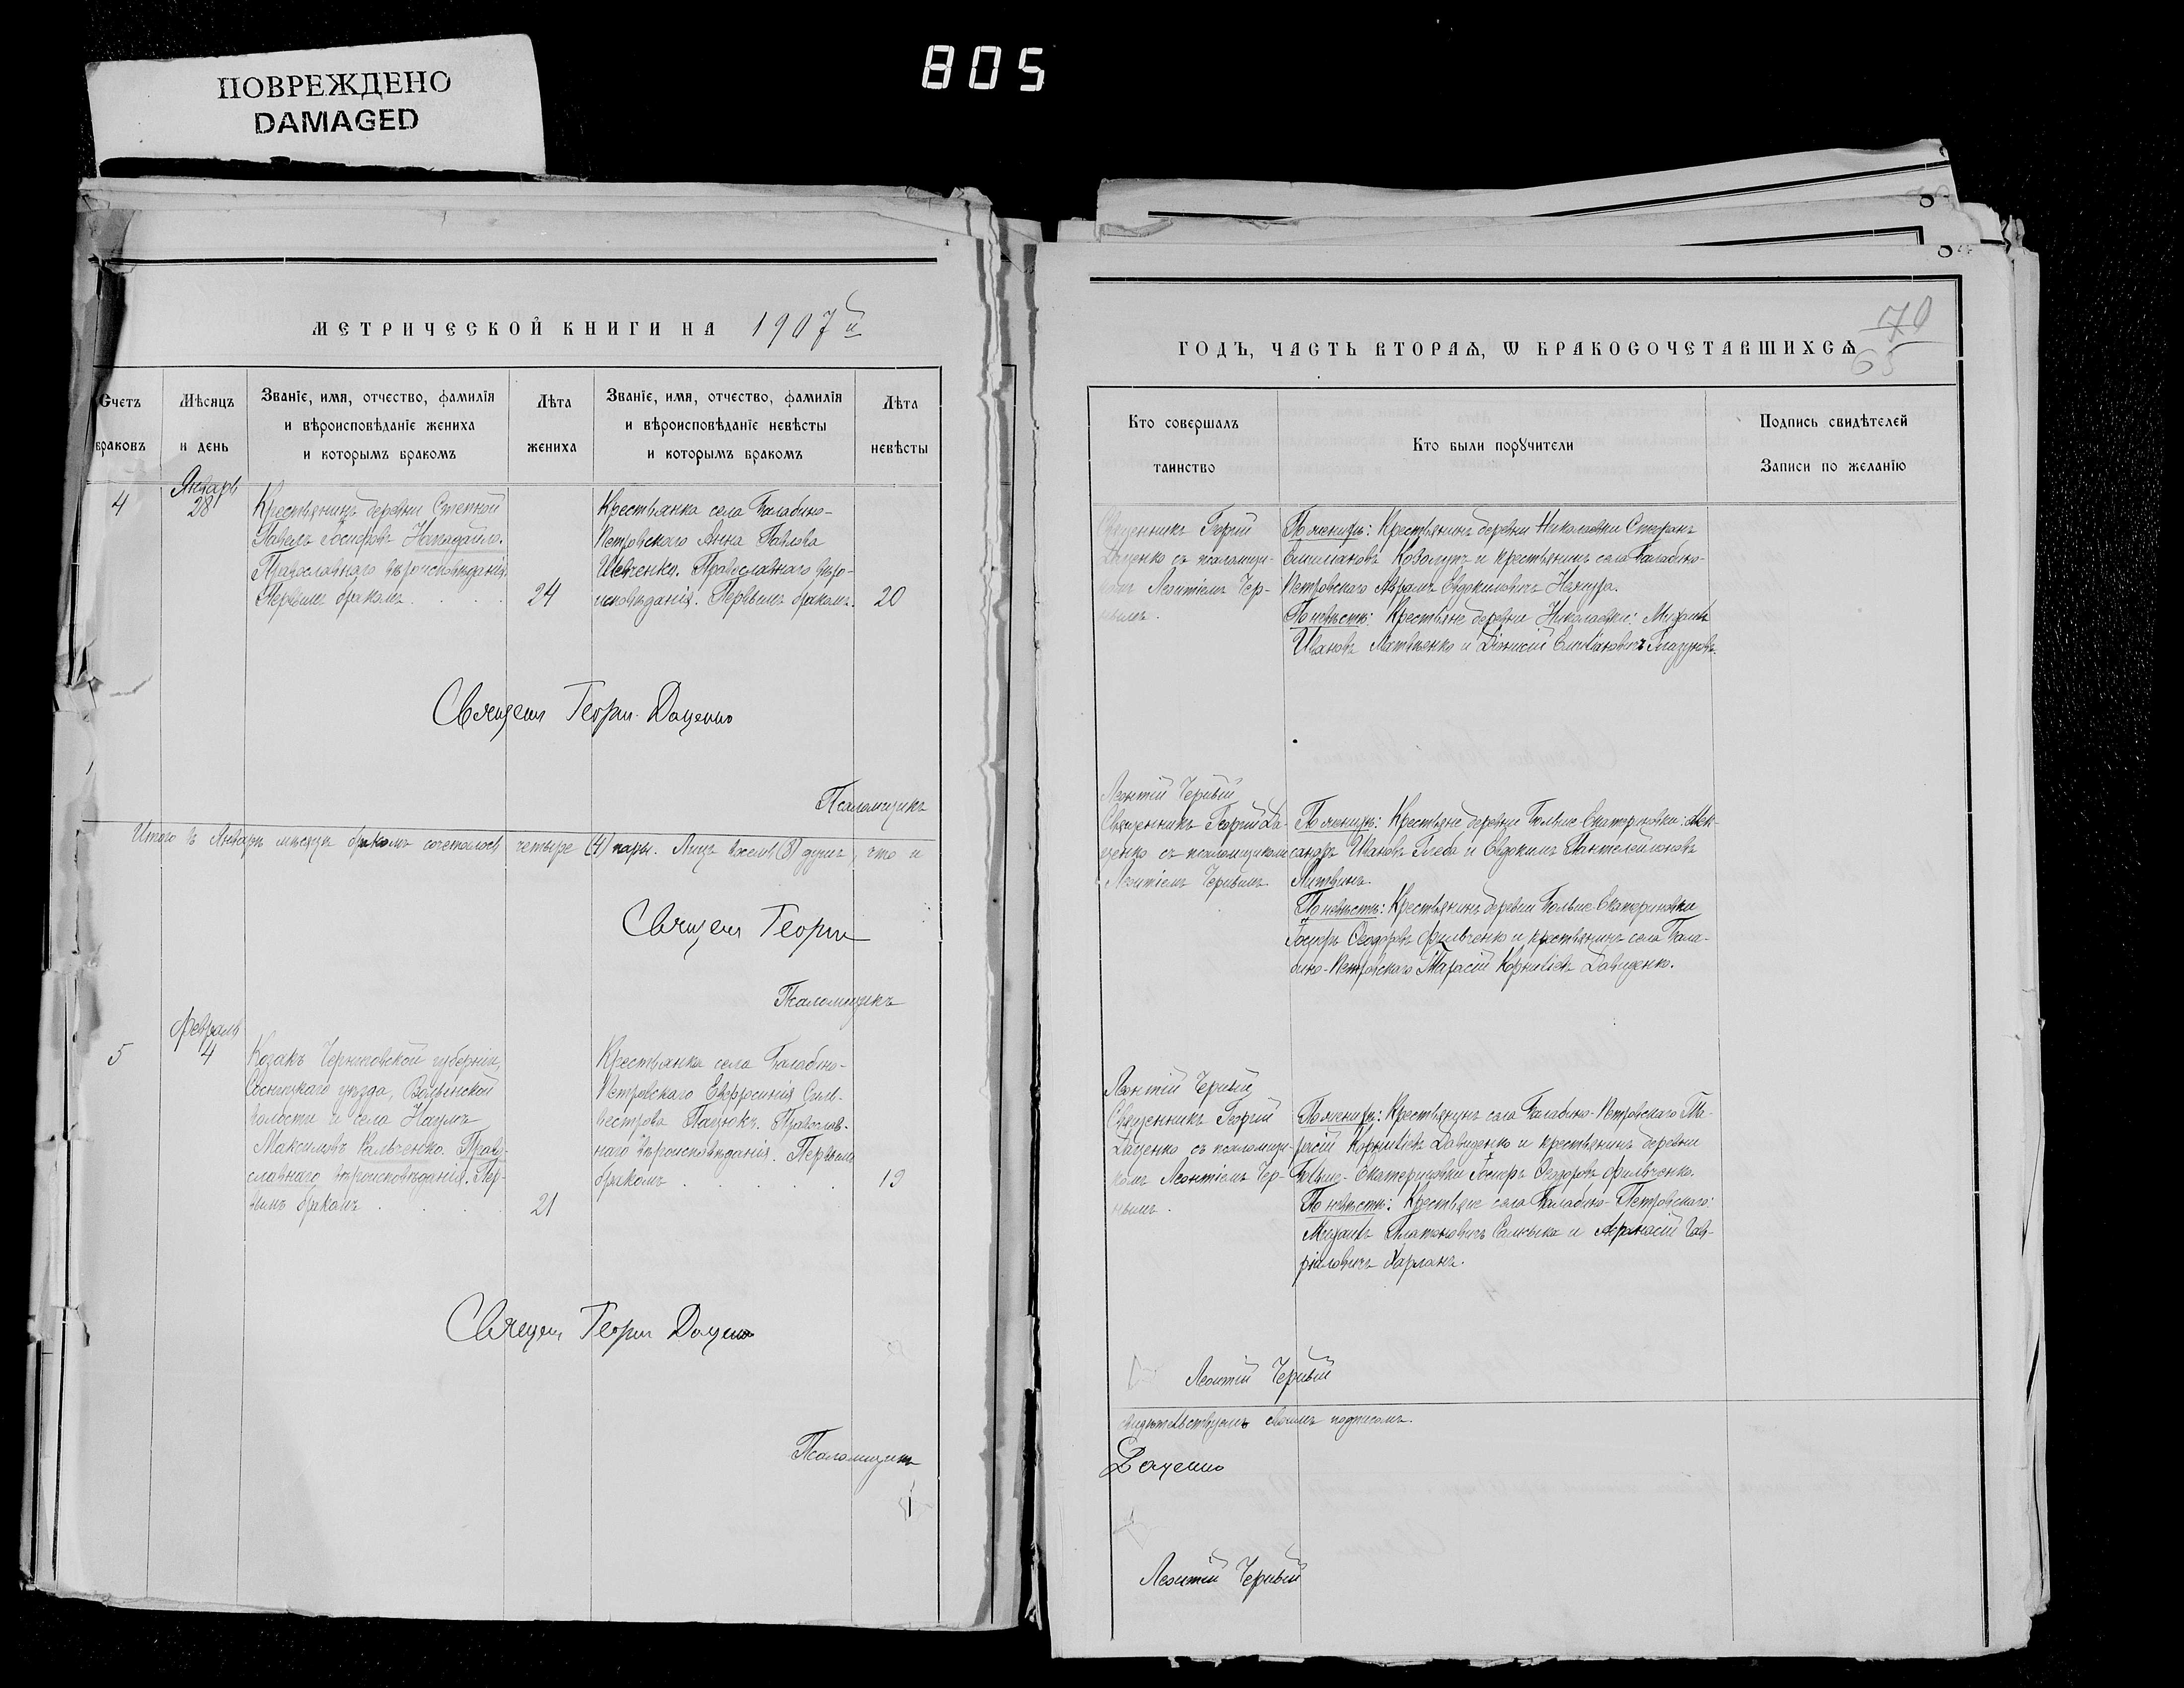 805
ПОВРЕЖДЕНО
DAMAGED
МЕТРИЧЕСКОЙ КНИГИ НА 1907й
Счетъ браковъ
Мѣсяцъ и день
Званіе, имя, отчество, фамилія
и вѣроисповѣданіе жениха
и которымъ бракомъ
Лѣта жениха
Званіе, имя, отчество, фамилія
и вѣроисповѣданіе невѣсты
и которымъ бракомъ
Лѣта невѣсты
4
Январь
28
Крестьянинъ деревни Степной
Павелъ Іосифовъ Нападайло.
Православнаго вѣроисповѣданія.
Первымъ бракомъ
24
Крестьянка села Балабино-
Петровскаго Анна Павлова
Шевченко. Православнаго вѣро-
исповѣданія. Первымъ бракомъ.
20
Священ Георгій Даценко
Псаломщикъ
Итого въ Январѣ мѣсяцѣ бракомъ сочеталось четыре (4) пары. Лицъ восемь (8) душъ, что и
Священ Георгій
Псаломщикъ
5
Февраль
4
Козакъ Черниговской губерніи,
Сосницкаго уѣзда,
волости и села Наумъ
Максимовъ Кальченко. Право-
славнаго вѣроисповѣданія. Пер-
вымъ бракомъ
21
Крестьянка села Балабино-
Петровскаго Евфросинія Силь-
вестрова Пащюкъ. Православ-
наго вѣроисповѣданія. Первымъ
бракомъ
19
Священ Георгій Даценко
Псаломщикъ
70
65
ГОДЪ, ЧАСТЬ ВТОРАЯ, Ѡ БРАКОСОЧЕТАВШИХСѦ
Кто совершалъ таинство
Кто были порꙋчители
Подпись свидѣтелей
Записи по желанію
Священникъ Георгій
Даценко съ псаломщи-
комъ Леонтіемъ Чер-
нымъ.
По женихѣ: Крестьянинъ деревни Николаевки Стефанъ
Емиліановъ и крестьянинъ села Балабино-
Петровскаго Аврамъ Евдокимовичъ Нехида.
По невѣстѣ: Крестьяне деревни Николаевки: Михаилъ
Ивановъ Матвѣенко и Діонисій Емиліановичъ Глазуновъ.
Леонтій Черный
Священникъ Георгій Да-
ценко съ псаломщикомъ
Леонтіемъ Чернымъ
По женихѣ: Крестьяне деревни Больше-Екатериновки: Алек-
сандръ Ивановъ Глеба и Евдокимъ Пантелеимоновъ
Литвинъ.
По невѣстѣ: Крестьянинъ деревни Больше-Екатериновки
Іосифъ Ѳеодоровъ Фильченко и крестьянинъ села Бала-
бино-Петровскаго Тарасій Корниліевъ Давиденко.
Леонтій Черный
Священникъ Георгій
Даценко съ псаломщи-
комъ Леонтіемъ Чер-
нымъ.
По женихѣ: Крестьянинъ села Балабино-Петровскаго Та-
расій Корниліевъ Давиденко и крестьянинъ деревни
Больше-Екатериновки Іосифъ Ѳеодоровъ Фильченко.
По невѣстѣ: Крестьяне села Балабино-Петровскаго:
Михаилъ Платоновичъ и Афанасій Гав-
риловичъ Харланъ.
Леонтій Черный
свидѣтельствуемъ своимъ подписомъ.
Даценко
Леонтій Черный